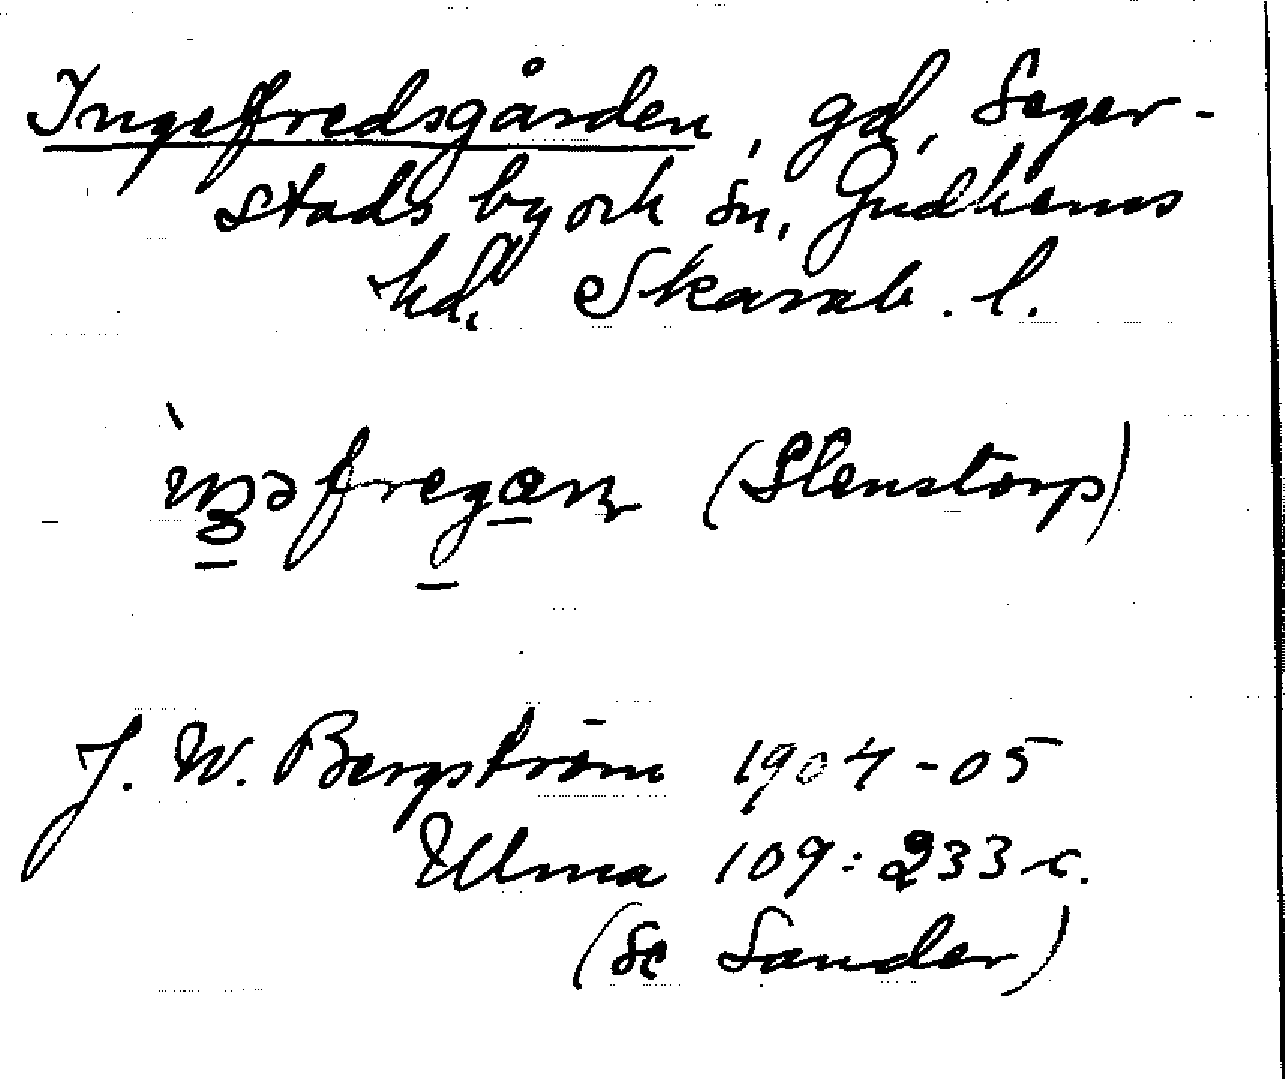 Ingefredsgården, gd, Seger-
stads by och sn, Gudhems
hd, Skarab. l.
(Stenstorp)
J. W. Bergström 1904-05
Ulma 109:233 c.
(Se Sander)